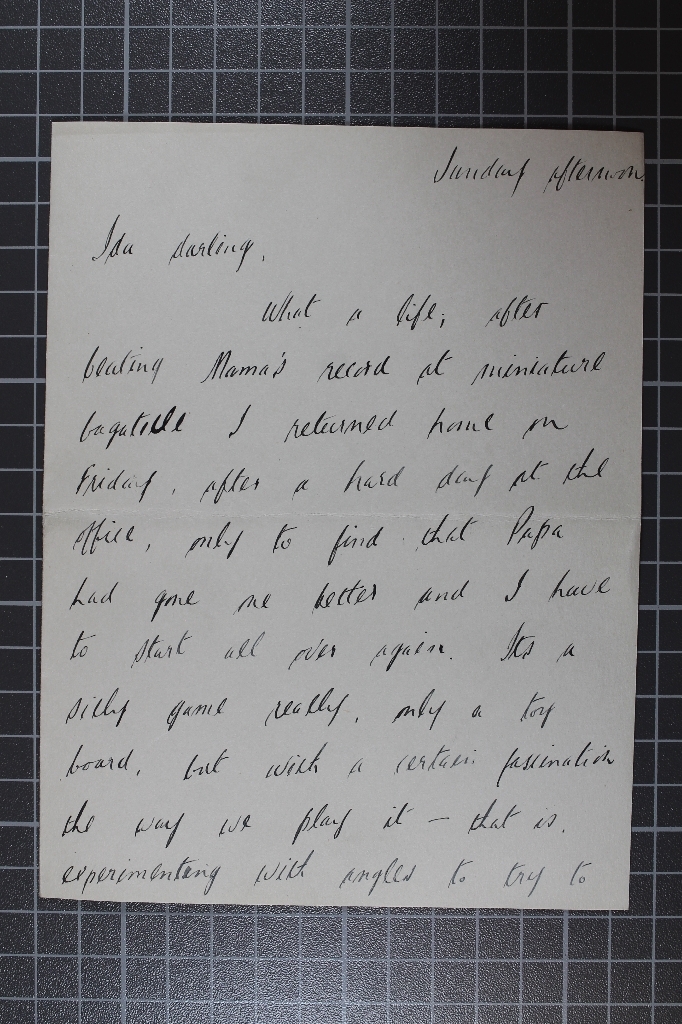 Sunday afternoon.
Ida darling,
What a life; after
beating Mama's record at miniature
bagatelle I returned home on
Friday, after a hard day at the
office, only to find that Papa
had gone one better and I have
to start all over again. Its a
silly game really, only a toy
board, but with a certain fascination
the way we play it – that is,
experimenting with angles to try to